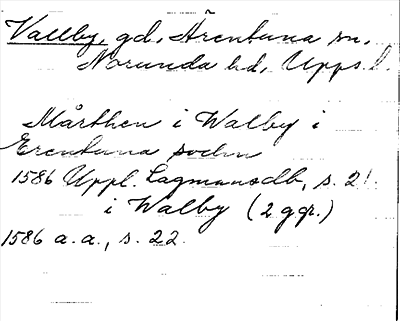 Vallby, gd., Ärentuna sn,
Norunda hd, Upps. l.
Mårthen i Walby i
Erentuna sochn
1586 Uppl. Lagmansdb, s. 21.
i Walby (2 ggr.)
1586 a. a., s. 22.